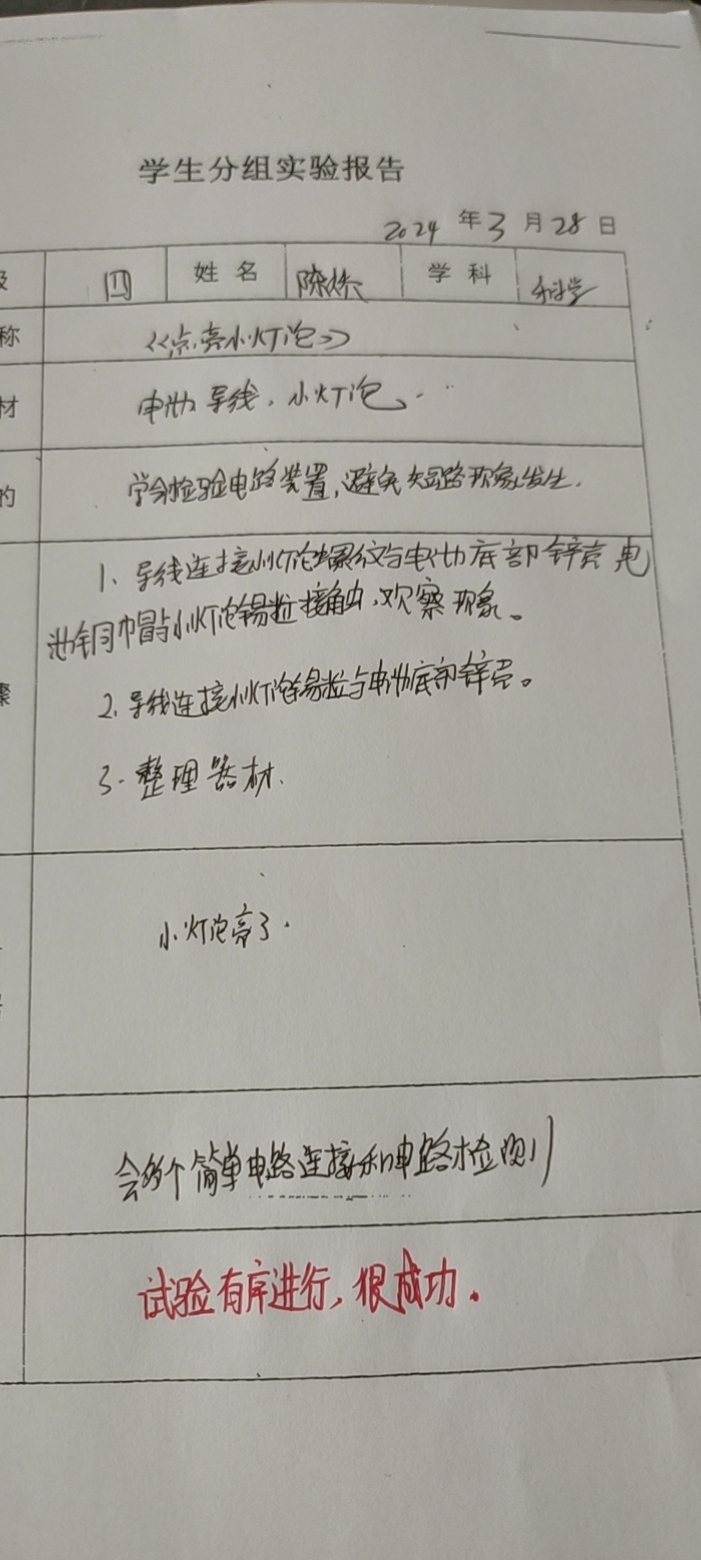 学生分组实验报告
2024 年 3 月 28 日
级 四 姓名 陈 学科 科学
称 《点亮小灯泡》
材 电池 导线、小灯泡
的 学会检验电路装置,避免短路现象发生.
1、导线连接小灯泡螺纹与电池底部锌壳 电
池铜帽与小灯泡锡粒接触,观察现象。
骤 2、导线连接小灯泡锡粒与电池底部锌壳。
3.整理器材.
小灯泡亮了.
会 个简单电路连接和电路检测
试验有序进行,很成功。